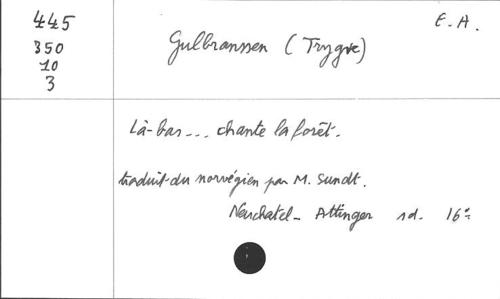 445
350
10
3
E.A.
Gulbranssen (Trygve)
Là-bas... chante la forêt.
traduit du norvégien par M. Sundt.
Neuchatel - Attinger sd. 16°